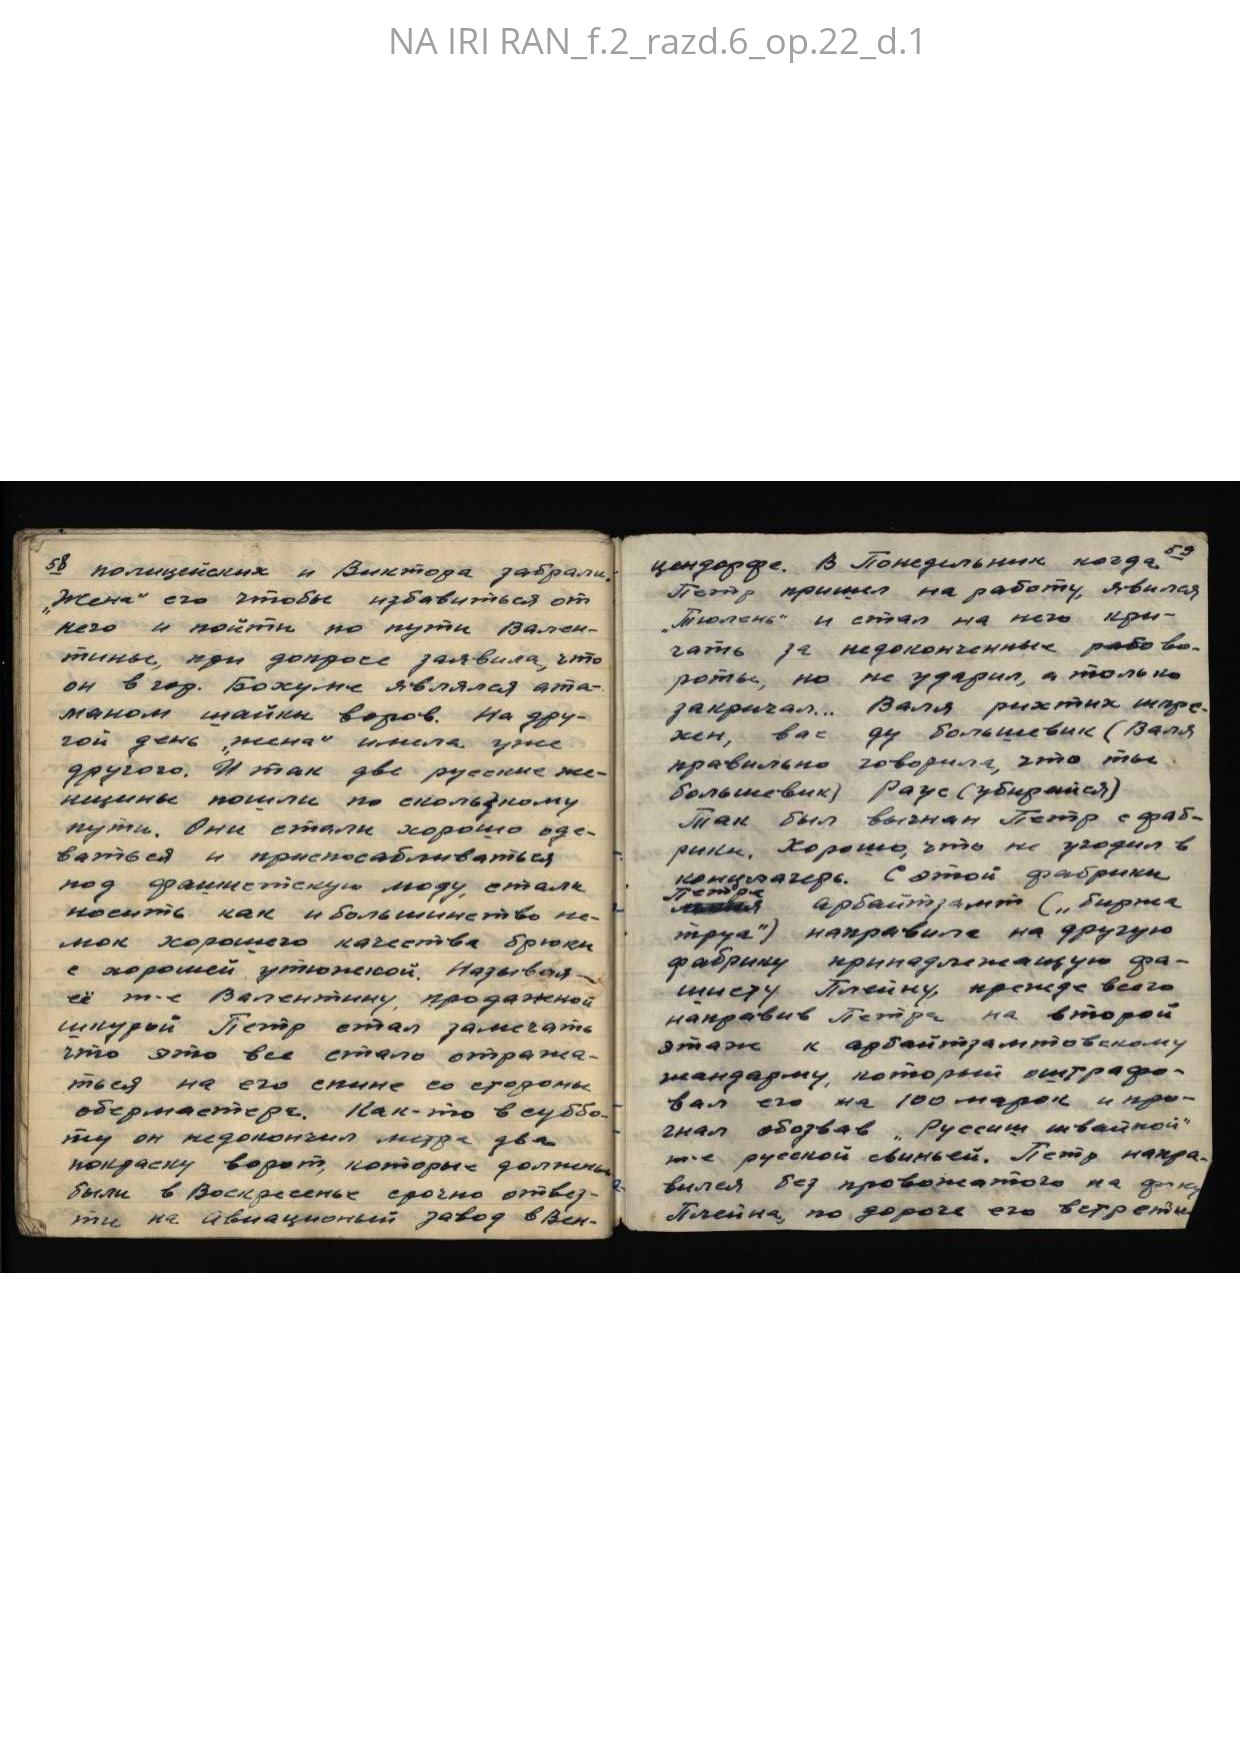 NA IRI RAN_f.2_razd.6_op.22_d.1
58
полицейских и Виктора забрали.
„Жена" его чтобы избавиться от
него и пойти по пути Вален-
тины, при допросе заявила, что
он в гор. Бохуме являлся ата-
маном шайки воров. На дру-
гой день „жена" имела уже
другого. И так две русские же-
нщины пошли по скользкому
пути. Они стали хорошо оде-
ваться и приспосабливаться
под фашистскую моду, стали
носить как и большинство не-
мок хорошего качества брюки
с хорошей утюжкой. Называя
её т-е Валентину, продажной
шкурой Петр стал замечать
что это все стало отража-
ться на его спине со стороны
обермастера. Как-то в суббо-
ту он недокончил метра два
покраску ворот, которые должны
были в Воскресенье срочно отвез-
ти на Авиационый завод в Вен-
59
цендорфе. В Понедельник когда
Петр пришел на работу, явился
„Тюлень" и стал на него кри-
чать за недоконченные во-
роты, но не ударил, а только
закричал... Валя рихтих шпре-
хен, вас ду большевик (Валя
правильно говорила, что ты
большевик) Раус (убирайся)
Так был выгнан Петр с фаб-
рики. Хорошо, что не угодил в
концлагерь. С этой фабрики
Петра
арбайтзамт („биржа
труа") направила на другую
фабрику принадлежащую фа-
шисту Плейну, прежде всего
направив Петра на второй
этаж к арбайтзамтовскому
жандарму, который оштрафо-
вал его на 100 марок и про-
гнал обозвав „Руссиш швайной"
т-е русской свиньей. Петр напра-
вился без провожатого на
Плейна, по дороге его встрети